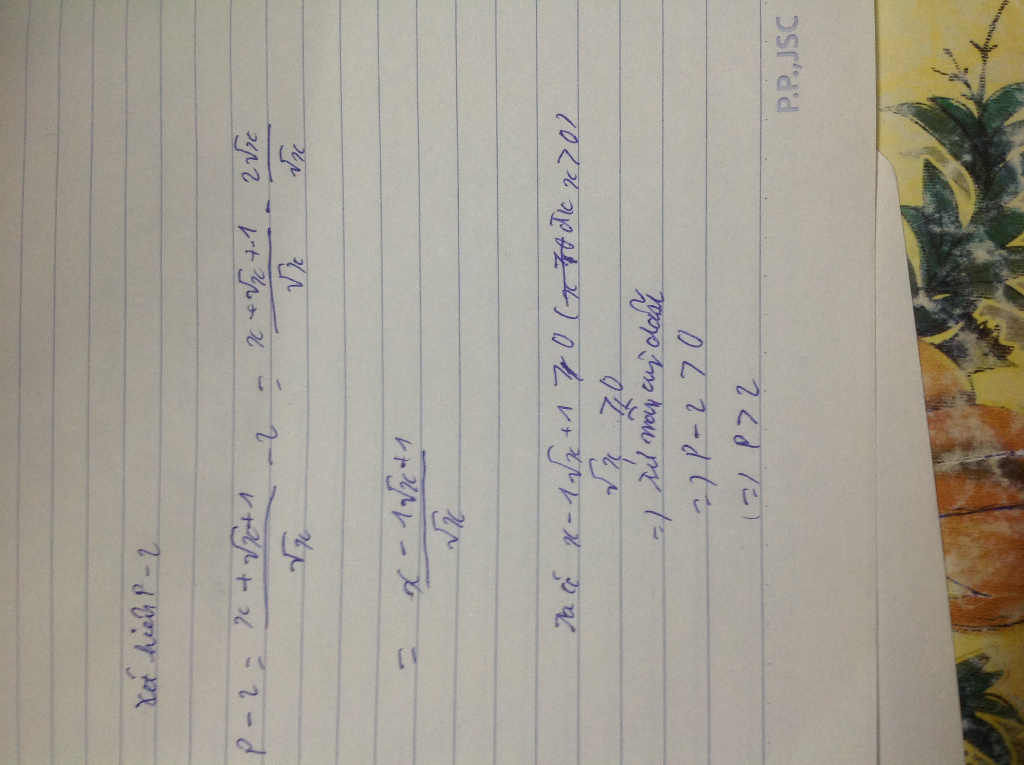 Xét hiệu P - 2
P - 2 = \frac{x + \sqrt{x} + 1}{\sqrt{x}} - 2 = \frac{x + \sqrt{x} + 1}{\sqrt{x}} - \frac{2\sqrt{x}}{\sqrt{x}}
= \frac{x - 1\sqrt{x} + 1}{\sqrt{x}}
Ta có x - 1\sqrt{x} + 1 > 0 ( đk x > 0)
\sqrt{x} > 0
=) cùng dấu
=) P - 2 > 0
(=) P > 2
P.P.,JSC